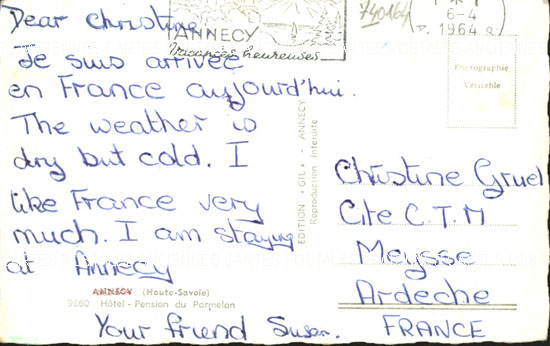 Dear Christine
Je suis arrivée
en France aujourd'hui.
The weather is
dry but cold. I
like France very
much. I am staying
at Annecy
Your friend Susan.
ANNECY
Vacances heureuses
6-4
1964
740164
Photographie
Véritable
EDITION "GIL" - ANNECY
Reproduction interdite
Christine Gruel
Cite C.T.M
Meysse
Ardeche
FRANCE
ANNECY (Haute-Savoie)
9260 Hôtel - Pension du Parmelan